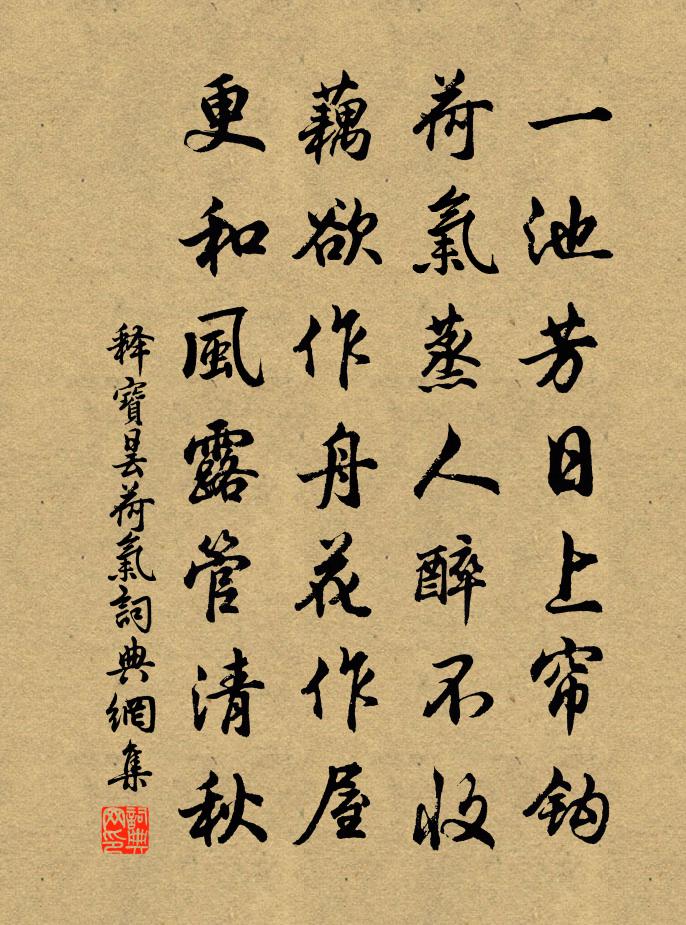 一池芳日上帘鈎
荷氣蒸人醉不收
藕欲作舟花作屋
更和風露管清秋
釋寶曇荷氣詞典網集
詞典網印